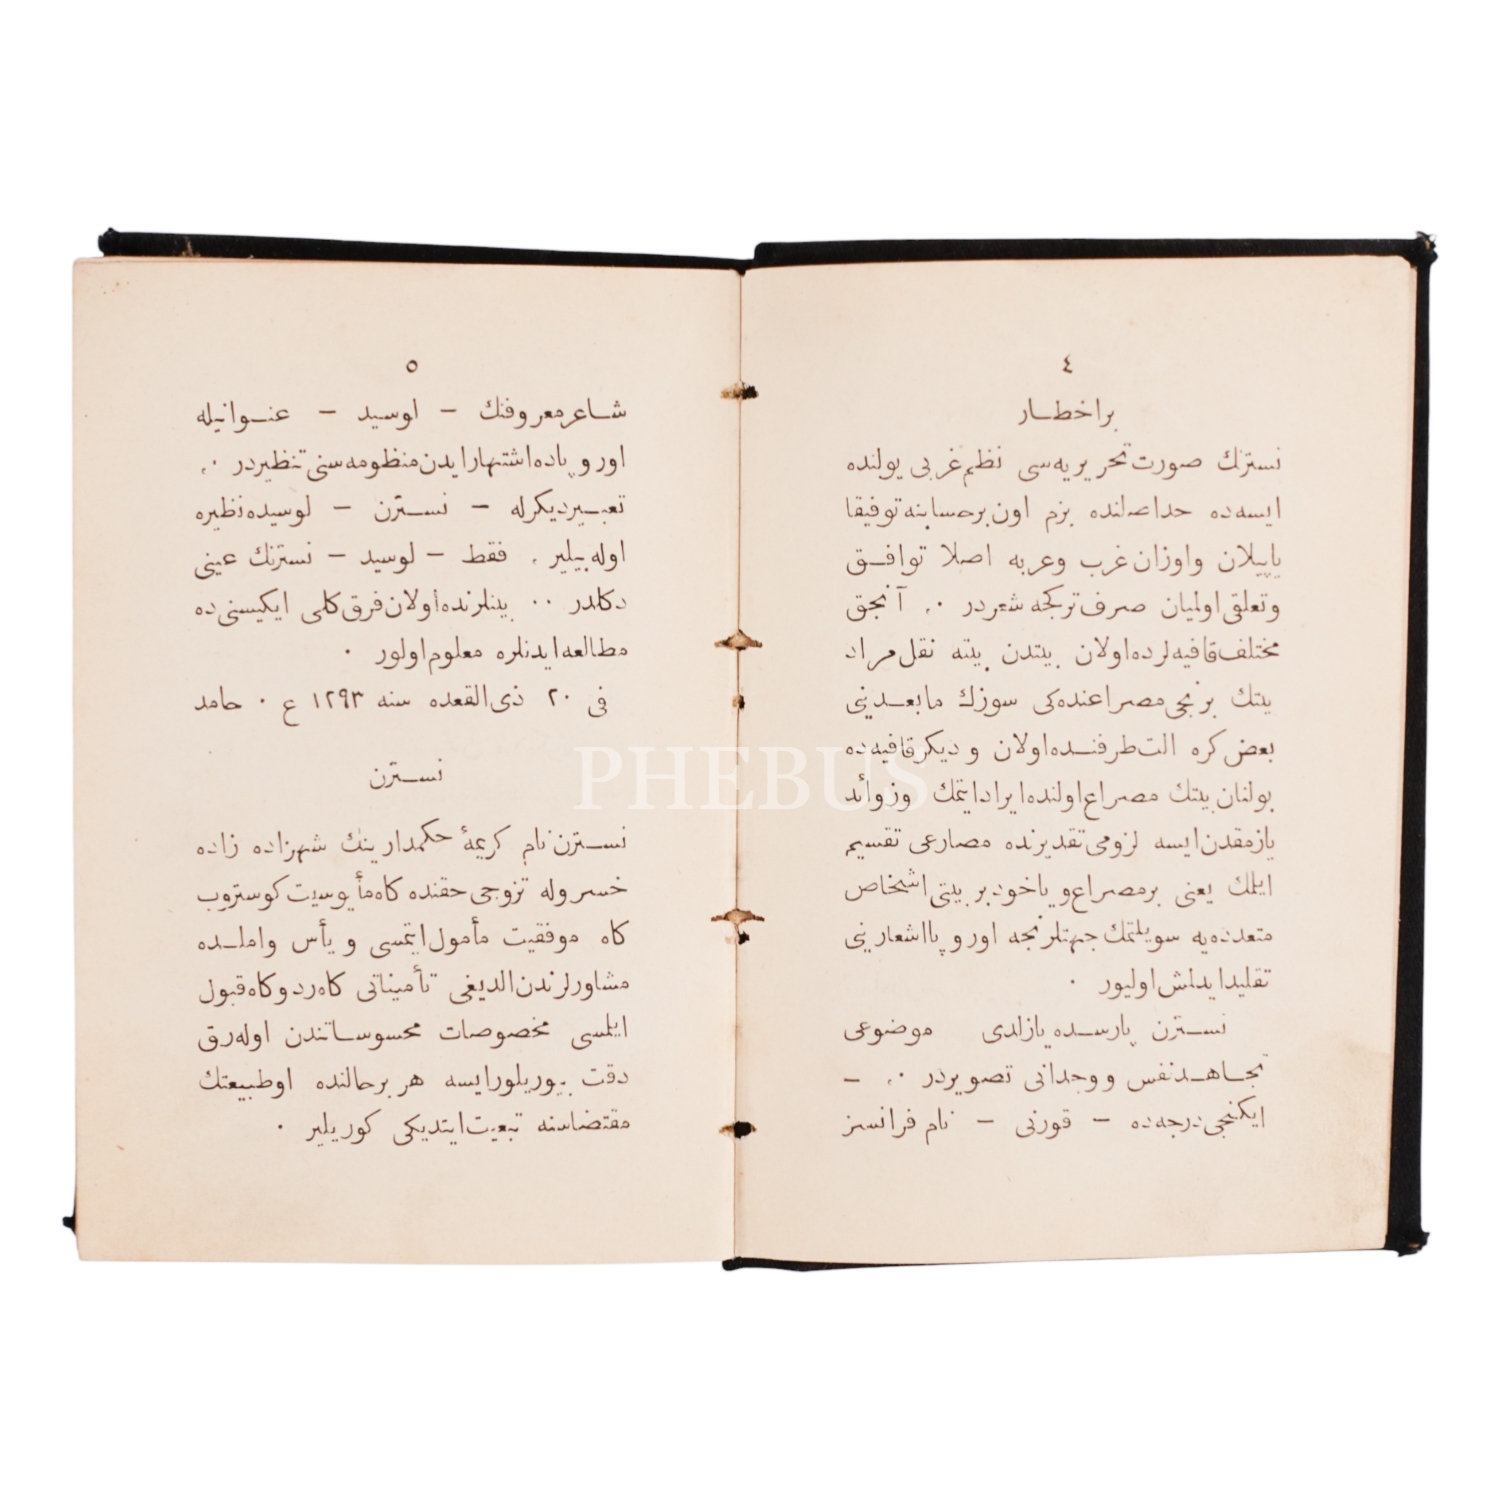 ٤
بر اخطار
نسترنك صورت تحریریه‌سی نظم غربی یولنده
ایسه‌ده حد اصلنده بزم اون بر حسابنه توفیقا
یاپیلان واوزان غرب وعربه اصلا توافق
وتعلقی اولمیان صرف تركجه شعردر ∴ آنجق
مختلف قافیه‌لرده اولان بیتدن بیته نقل مراد
بیتك برنجی مصراعنده‌كی سوزك مابعدینی
بعض كره الت طرفنده اولان ودیكر قافیه‌ده
بولنان بیتك مصراع اولنده ایراد ایتمك وزوائد
یازمقدن ایسه لزومی تقدیرنده مصارعی تقسیم
ایلمك یعنی بر مصراع ویاخود بر بیتی اشخاص
متعدده‌یه سویلتمك جهتلرنجه اوروپا اشعارینی
تقلید ایدلمش اولیور ٠
نسترن پارسده یازلدی موضوعی
تجاهد نفس و وجدانی تصویردر ∴ —
ایكنجی درجه‌ده — قورنی — نام فرانسز
٥
شاعر معروفنك — لوسید — عنوانیله
اوروپاده اشتهار ایدن منظومه‌سنی تنظیردر ∴
تعبیر دیكرله — نسترن — لوسیده نظیره
اوله‌بیلیر . فقط — لوسید — نسترنك عینی
دكلدر ٠٠ بینلرنده اولان فرق كلی ایكیسنی ده
مطالعه ایدنلره معلوم اولور ٠
فی ٢٠ ذی القعده سنه ١٢٩٣ ع ٠ حامد
نسترن
نسترن نام كریمهٔ حكمدارینك شهزاده زاده
خسرو له تزوجی حقنده كاه مأیوسیت كوستروب
كاه موفقیت مأمول ایتمسی ویأس واملده
مشاورلرندن الدیغی تأمیناتی كاه رد وكاه قبول
ایلمسی مخصوصات محسوساتندن اوله‌رق
دقت بیوریلور ایسه هر بر حالنده او طبیعتك
مقتضاسنه تبعیت ایتدیكی كوریلیر ٠
PHEBUS